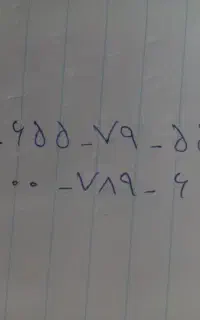 ۶۵۵-۷۹-۵
۰۰-۷۸۹-۶